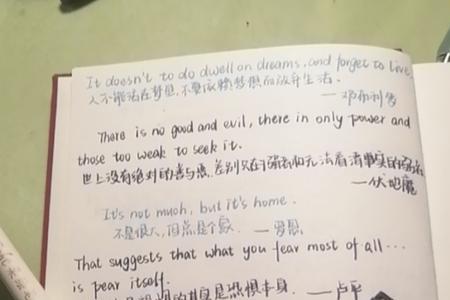 It doesn't to do dwell on dreams, and forget to live
人不能活在梦想,不要依赖梦想而放弃生活.
—邓布利多
There is no good and evil, there in only power and
those too weak to seek it.
世上没有绝对的善与恶,差别只在于强者和无法看清事实的弱者
—伏地魔
It's not much, but it's home.
不是很大,但总是个家. —罗恩
That suggests that what you fear most of all...
is pear itself.
是恐惧本身. —卢平